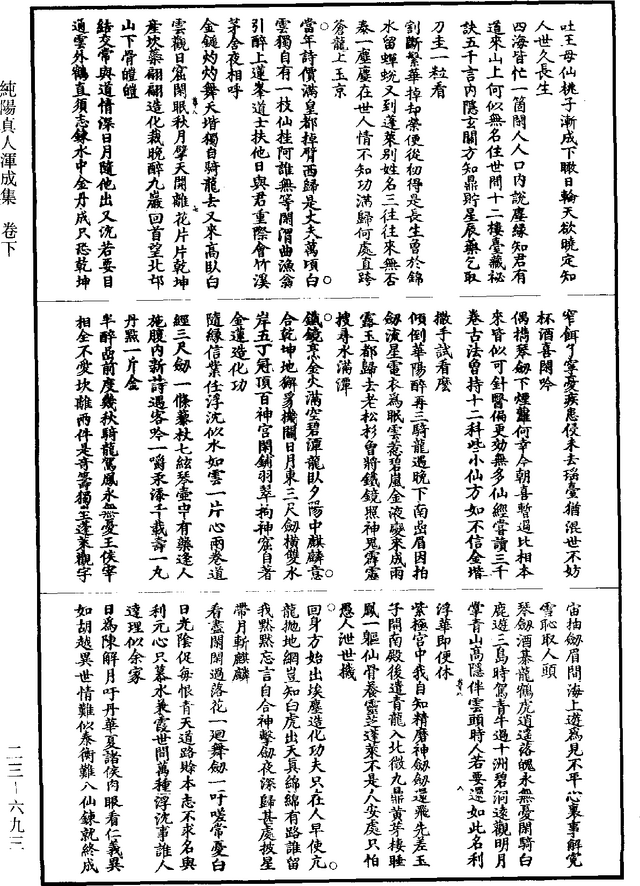 吐王母仙桃子漸成下瞰日輪天欲曉定知
人世久長生
四海皆忙一箇閑人人口內說塵緣知君有
道來山上何似無名住世間十二樓臺藏祕
訣五千言內隱玄關方知鼎貯星辰藥乞取
刀圭一粒看
割斷繁華掉却榮便從初得是長生曾於錦
水留蟬蛻又到蓬萊別姓名三往往來無否
泰一塵塵在世人情不知功滿歸何處直跨
蒼龍上玉京
當年詩價滿皇都掉臂西歸是丈夫萬頃白
雲獨自有一枝仙桂阿誰無等閑渭曲漁翁
引醉上蓬峯道士扶他日與君重際會竹溪
茅舍夜相呼
金鎚灼灼舞天堦獨自騎龍去又來高臥白
雲觀日窟閑眠秋月擘天開離花片片乾坤
產坎蘂翩翩造化栽晚醉九巖回首望北邙
山下骨皚皚
結交常與道情深日月隨他出又沉若要自
通雲外鶴直須志鍊水中金丹成只恐乾坤
窄餌了寧憂疾患侵未去瑤臺猶混世不妨
杯酒喜閑吟
偶擕琴劒下煙蘿何幸今朝喜暫過比相本
來皆似可針醫偏更効無多仙經嘗讀三千
卷古法曾持十二科些小仙方如不信金堦
撒手試看麼
傾倒華陽醉再三騎龍遇晚下南嵓眉因拍
劒流星電衣為眠雲惹碧嵐金液變來成雨
露玉都歸去老松杉曾將鐵鏡照神鬼霹靂
搜尋水滿潭
鐵鏡烹金火滿空碧潭龍臥夕陽中麒麟意
合乾坤地獬豸機關日月東三尺劒橫雙水
岸五丁冠頂百神宮閑鋪羽翠拘神窟自著
金蓮造化功
隨緣信業任浮沉似水如雲一片心兩卷道
經三尺劒一條藜杖七絃琴壺中有藥逢人
施腹內新詩遇客吟一嚼永添千載壽一丸
丹點一斤金
半醉嵓前度幾秋騎龍駕鳳永無憂王侯宰
相全不愛坎離兩件是奇籌獨坐蓬萊觀宇
宙抽劒眉間海上遊為見不平心裏事解冤
雪恥取人頭
琴劒酒棊龍鶴虎逍遙落魄永無憂閑騎白
鹿遊三島時駕青牛過十洲碧洞遠觀明月
掌青山高隱伴雲頭時人若要還如此名利
浮華即便休
紫極宮中我自知精磨神劒劒還飛先差玉
子開南殿後遣青龍入北微九鼎黃芽棲睡
鳳一軀仙骨養靈芝蓬萊不是人安處只怕
愚人泄世機
回身方始出埃塵造化功夫只在人早使亢
龍拋地網豈知白虎出天真綿綿有路誰留
我默默忘言自合神擊劒夜深歸甚處披星
帶月斬麒麟
看盡閑閑過落花一迴舞劒一吁嗟常憂白
日光陰促每恨青天道路賒本志不求名與
利元心只慕水兼霞世間萬種浮沈事誰人
達理似余家
日為陳解月吁丹華夏諸侯肉眼看仁義異
如胡越異世情難似泰衡難八仙鍊就終成
純陽真人渾成集　卷下
二三—六九三